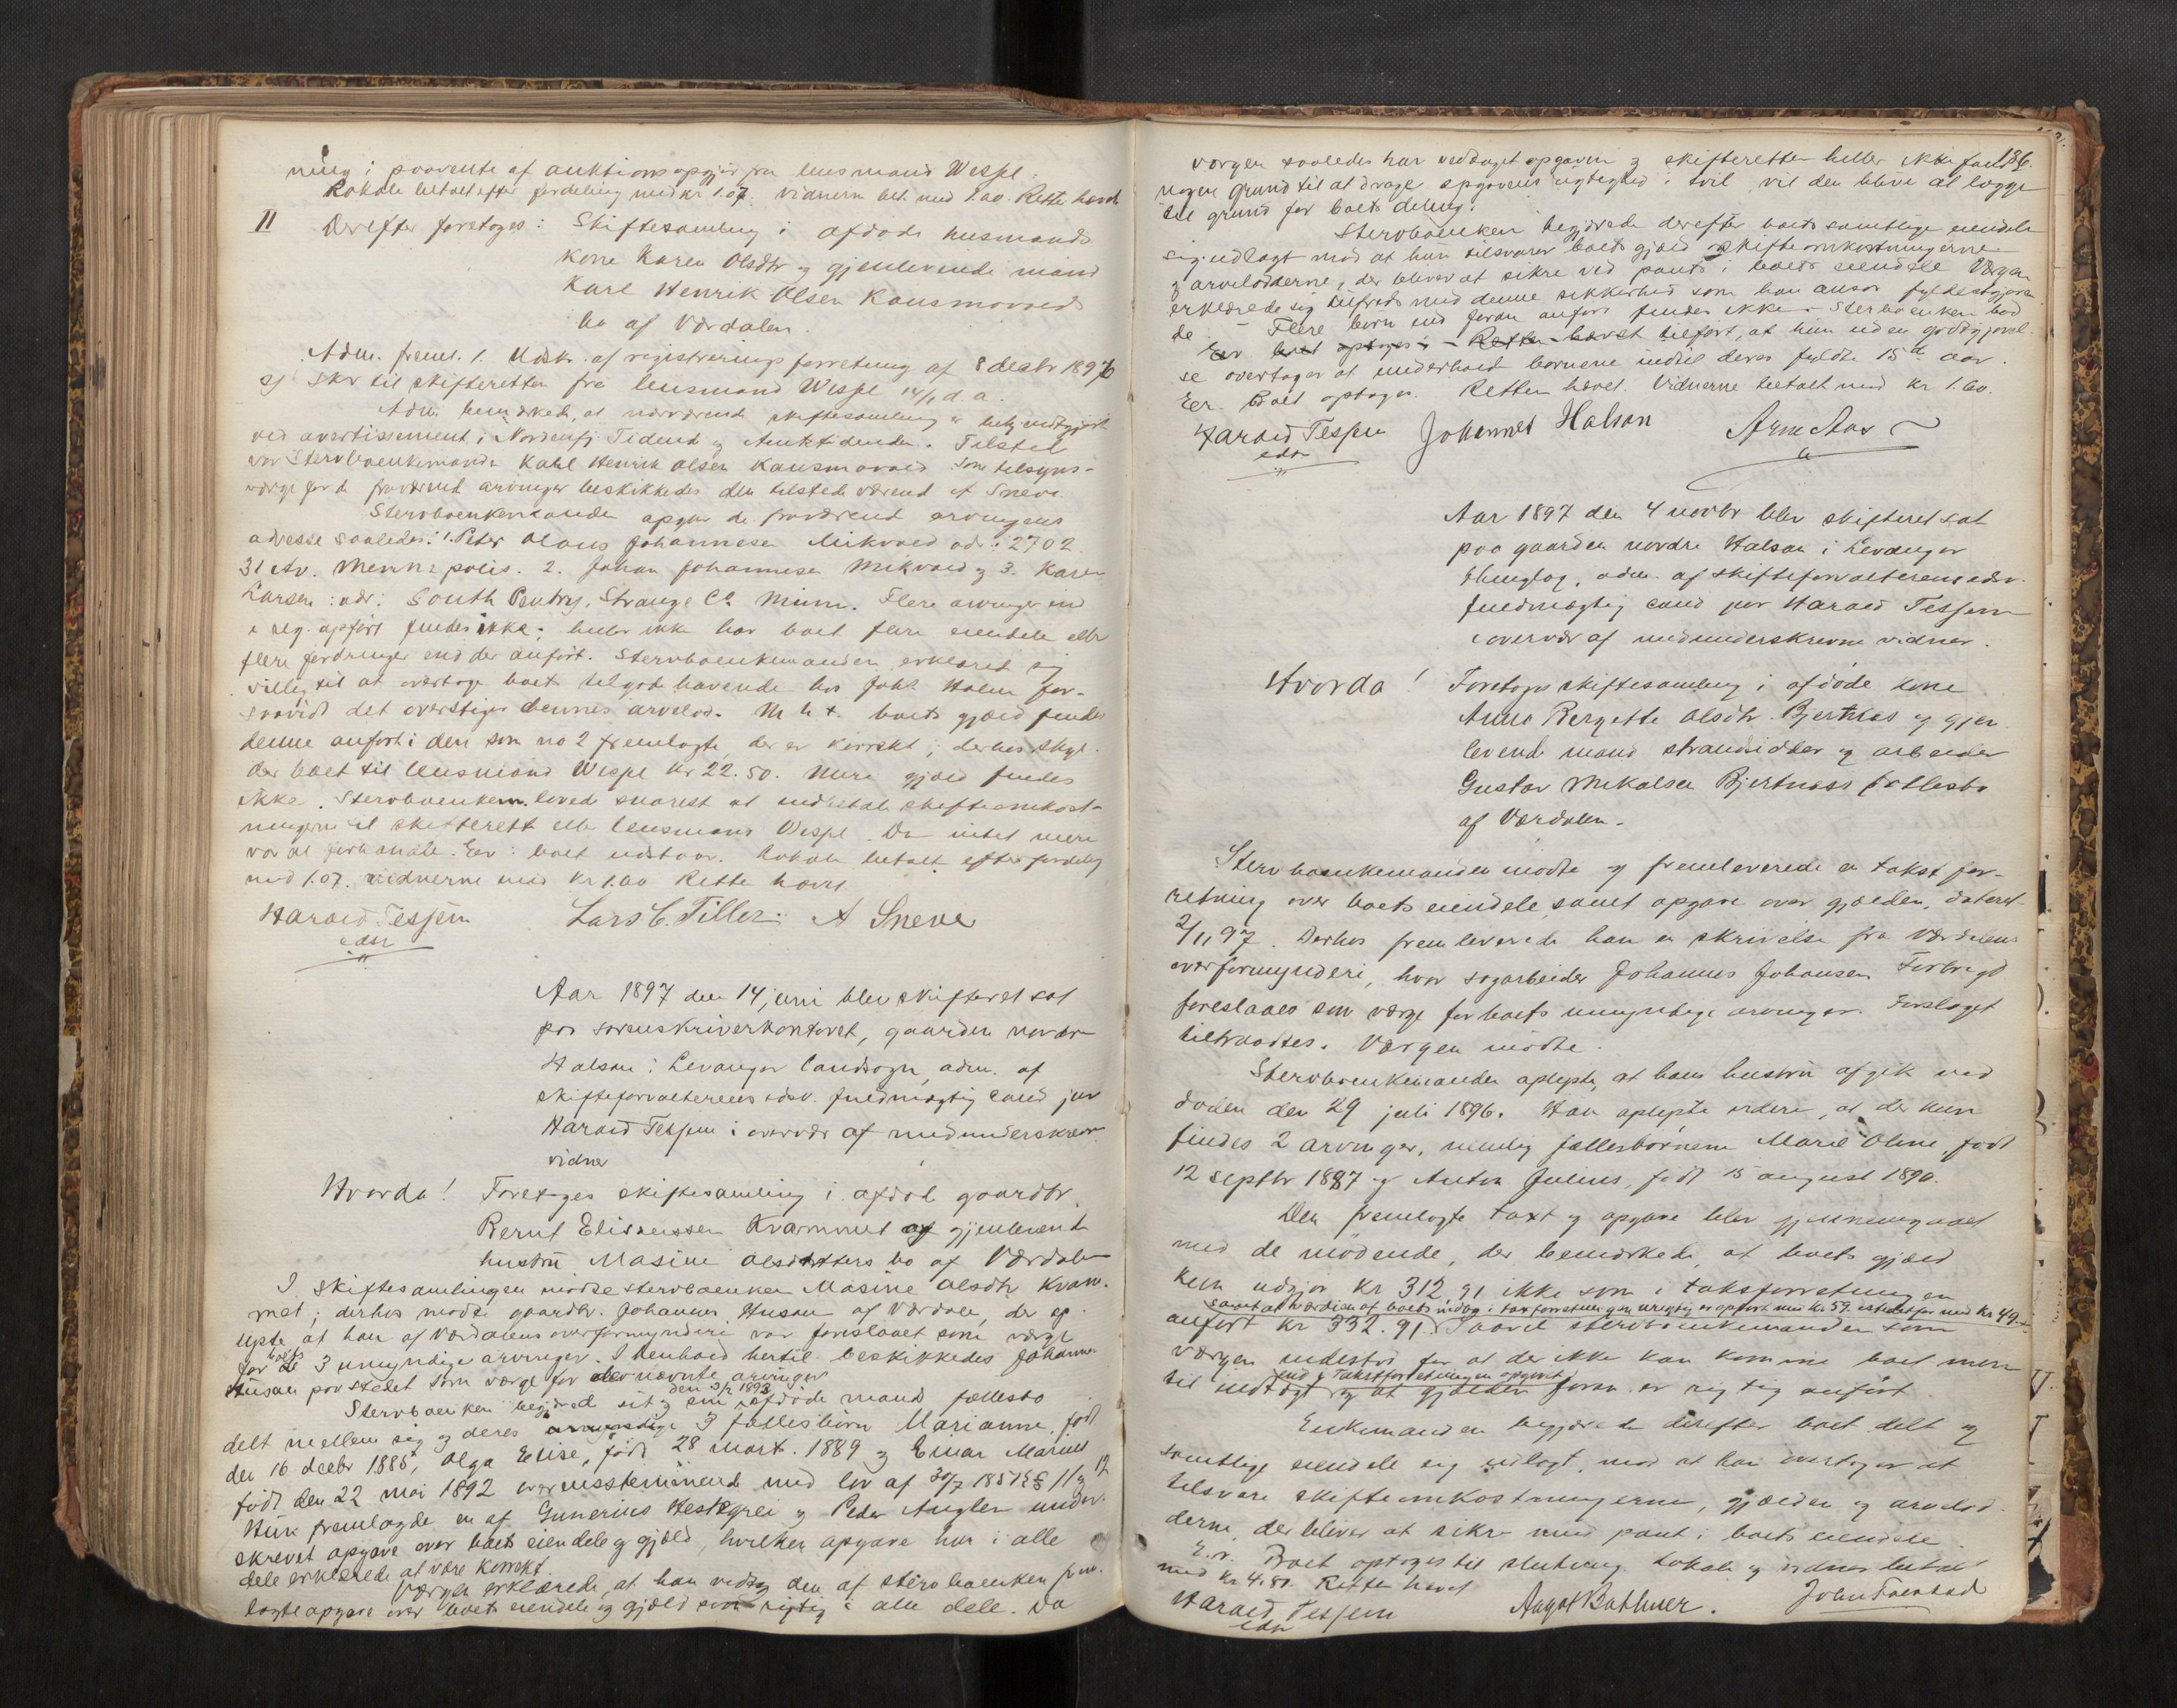 ning i paavente af auktionsopgjør fra lensmand Wespe.
Lokale betalt efter fordeling med kr 1.07. Vidnerne bet. med 1.60. Retten hævet
II Derefter foretoges: Skiftesamling i afdøde husmands
kone Karen Olsdtr og gjenlevende mand
Karl Henrik Olsen Kausmovald
bo af Værdalen.
Adm. freml. 1. Udskr. af registreringsforretning af 8 decbr 1896
2) Skr til skifteretten fra lensmand Wespe 14/1 d. a.
Adm. bemærkede, at nærværende skiftesamling er bekjendtgjort
ved avertissement i Nordenfj. Tidende og Amtstidende. Tilstede
var Stervboenkemanden Karl Henrik Olsen Kausmovald. Som tilsyns-
værge for de fraværende arvinger beskikkedes den tilstede værende A Sneve.
Stervboenkemanden opgav de fraværende arvingers
adresse saaledes: 1. Peter Olaus Johannesen Mikvold adr: 2702
31 Av. Minnepolis. 2. Johan Johannesen Mikvold og 3. Karen
Larsen: adr: South Pentry, Strange Co Minn. Flere arvinger end
i reg. opført findes ikke; heller ikke har boet flere eiendele eller
flere fordringer end der anført. Stervboenkemanden erklæred sig
villig til at overtage boets tilgodehavende hos Johs Holm for-
saavidt det overstiger dennes arvelod. M. h. t. boets gjæld findes
denne anført i den som no 2 fremlagte, der er korrekt; derhos skyl-
der boet til lensmand Wespe kr 22.50. Mere gjæld findes
ikke. Stervboenkem. loved snarest at indbetale skifteomkost-
ningerne til skifteretten eller lensmand Wespe. Da intet mere
var at forhandle. Eer: boet udstaar. Lokale betalt efter fordeling
med 1.07. vidnerne med kr 1.60 Retten hævet
Harald Tessem Lars C. Tiller. A Sneve
edsv
Aar 1897 den 14 juni blev skifteret sat
paa sorenskriverkontoret, gaarden nordre
Halsan i Levanger landsogn, adm. af
skifteforvalterens edsv. fuldmægtig cand jur
Harald Tessem i overvær af medunderskrevne
vidner
Hvorda! Foretoges skiftesamling i afdød gaardbr.
Bernt Elisæussen Kvammet og gjenlevende
hustru Masine Olsdatters bo af Værdalen
I skiftesamlingen mødte stervboenken Masine Olsdtr Kvam-
met; derhos mødte gaardbr. Johannes Husan af Værdalen, der op-
lyste at han af Værdalens overformynderi var foreslaaet som værge
for boets 3 umyndige arvinger. I henhold hertil beskikkedes Johannes
Husan paa stedet som værge for de nævnte arvinger
Stervboenken begjæred sit og sin den 3/2 1893 afdøde mands fællesbo
delt mellem sig og deres 3 fællesbørn Marianne, født
den 16 decbr 1885, Olga Elise, født 28 mart. 1889 og Einar Marius
født den 22 mai 1892 overensstemmende med lov af 30/7 1851 §§ 11 og 12
Hun fremlagde en af Gunerius Hestegrei og Peder Auglen under-
skrevet opgave over boets eiendele og gjæld, hvilken opgave hun i alle
dele erklærede at være korrekt.
Værgen erklærede, at han vedtog den af stervboenken frem-
lagte opgave over boets eiendele og gjæld som rigtig i alle dele. Da
186.
værgen saaledes har vedtaget opgaven og skifteretten heller ikke fandt
nogen grund til at drage opgavens rigtighed i tvil vil den blive at lægge
til grund for boets deling.
Stervboenken begjærede derefter boets samtlige eiendele
sig udlagt mod at hun tilsvarer boets gjæld og skifteomkostningerne
og arvelodderne, der bliver at sikre ved pant i boets eiendele Værgen
erklærede sig tilfreds med denne sikkerhed som han ansor fyldestgjøren-
de – Flere børn end foran anført findes ikke. Stervboenken bad
Eer boet optages Retten hævet tilført, at hun uden godtgjørel-
se overtager at underholde børnene indtil deres fyldte 15de aar.
Eer. Boet optages. Retten hævet. Vidnerne betalt med kr 1.60.
Harald Tessem Johannes Halsan Arne Aas
edsv
Aar 1897 den 4 novbr blev skifteret sat
paa gaarden nordre Halsan i Levanger
thinglag, adm. af skifteforvalterens edsv.
fuldmægtig cand jur Harald Tessem
i overvær af medunderskrevne vidner.
Hvorda! Foretoges skiftesamling i afdøde kone
Anne Bergette Olsdtr. Bjertnæs og gjen-
levende mand strandsidder og arbeider
Gustav Mikalsen Bjertnæss fællesbo
af Værdalen.
Stervboenkemanden mødte og fremleverede en takstfor-
retning over boets eiendele samt opgave over gjælden, dateret
2/11 97. Derhos fremleverede han en skrivelse fra Værdalens
overformynderi, hvor sagarbeider Johannes Johansen Forbregd
foreslaaes som værge for boets umyndige arvinger. Forslaget
tiltraadtes. Værgen mødte.
Stervboenkemanden oplyste, at hans hustru afgik ved
døden den 29 juli 1896. Han oplyste videre, at der kun
findes 2 arvinger, nemlig fællesbørnene Marie Oline, født
12 septbr 1887 og Anton Julius, født 15 august 1890.
Den fremlagte taxt og opgave blev gjennemgaaet
med de mødende, der bemærkede, at boets gjæld
kun udgjør kr 312,91 ikke som i takstforretningen
samt at værdien af boets indbo i taxtforretningen urigtig er opført med kr 59. istedetfor med kr 49.–
anført kr 332.91. Saavel stervboenkemanden som
værgen indestod for at der ikke kan komme boet mere
end i takstforretningen opgivet
til indtægt og at gjælden foran er rigtig anført.
Enkemanden begjærede derefter boet delt og
samtlige eiendele sig udlagt, mod at han overtager at
tilsvare skifteomkostningerne, gjælden og arvelod-
derne, der bliver at sikre med pant i boets eiendele.
E. r. Boet optages til slutning. Lokale og vidner betalt
med kr 4.80. Retten hævet
Harald Tessem Aagot Bathner. John Tolstad
edsv